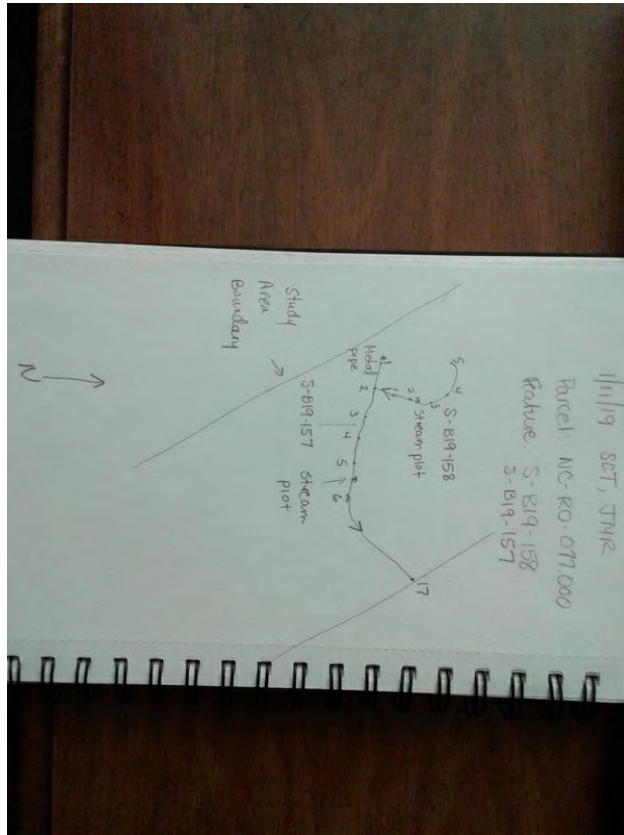 1/11/19 SCT, JMR
Parcel: NC-RO-077.000
Feature: S-B19-158
S-B19-157
5
4
S-B19-158
3
2
Stream plot
1
1
Metal
pipe
2
3
4
5
6
17
S-B19-157
Stream
plot
Study
Area
Boundary
N